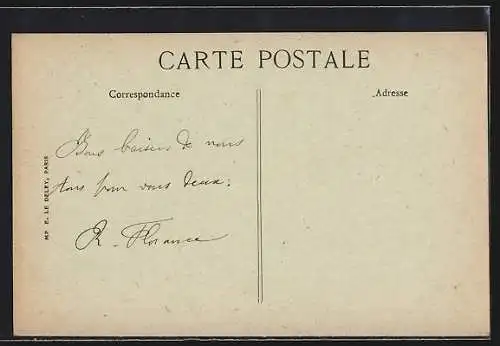 CARTE POSTALE
Correspondance
Adresse
Bons baisers de nous
tous pour vous deux.
R. Florance
MP E. LE DELEY, PARIS